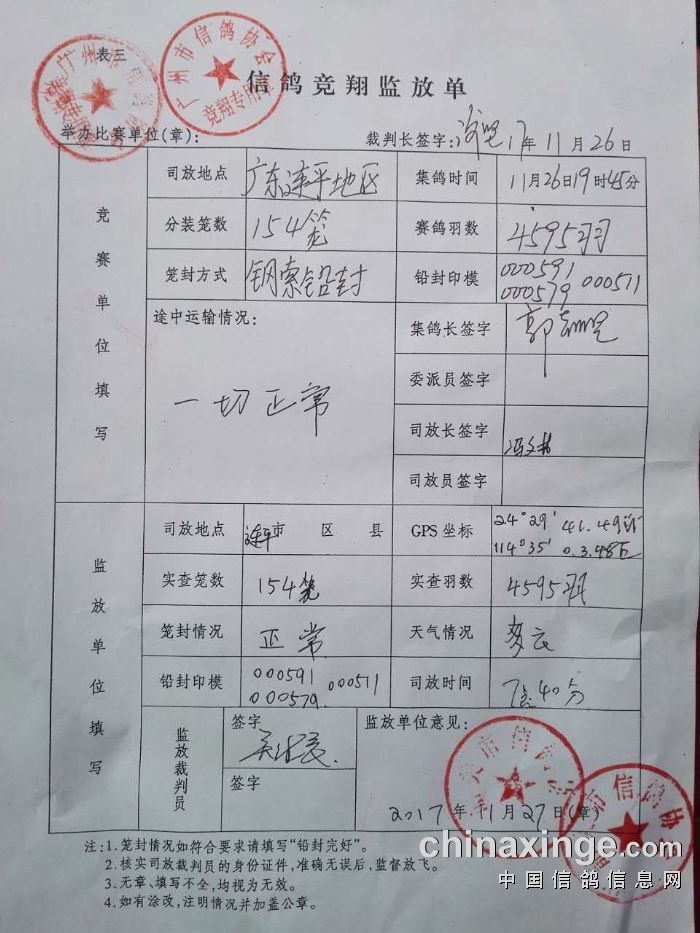 表三
广州市信鸽协会
竞翔专用章
信鸽竞翔监放单
举办比赛单位(章):
裁判长签字: 17年11月26日
竞赛单位填写
司放地点 广东连平地区 集鸽时间 11月26日19时45分
分装笼数 154笼 赛鸽羽数 4595羽
笼封方式 钢索铅封 铅封印模 000591 000571
000579
途中运输情况: 集鸽长签字
一切正常
委派员签字
司放长签字
司放员签字
监放单位填写
司放地点 连平市 区 县 GPS坐标 24°29′41.49
114°35′0.3.48
实查笼数 154笼 实查羽数 4595羽
笼封情况 正常 天气情况 多云
铅封印模 000591 000511 司放时间 7点40分
000579
监放裁判员
签字
签字
监放单位意见:
2017年11月27日(章)
注:1.笼封情况如符合要求请填写“铅封完好”。
2.核实司放裁判员的身份证件,准确无误后,监督放飞。
3.无章、填写不全,均视为无效。
4.如有涂改,注明情况并加盖公章。
chinaxinge.com
中国信鸽信息网